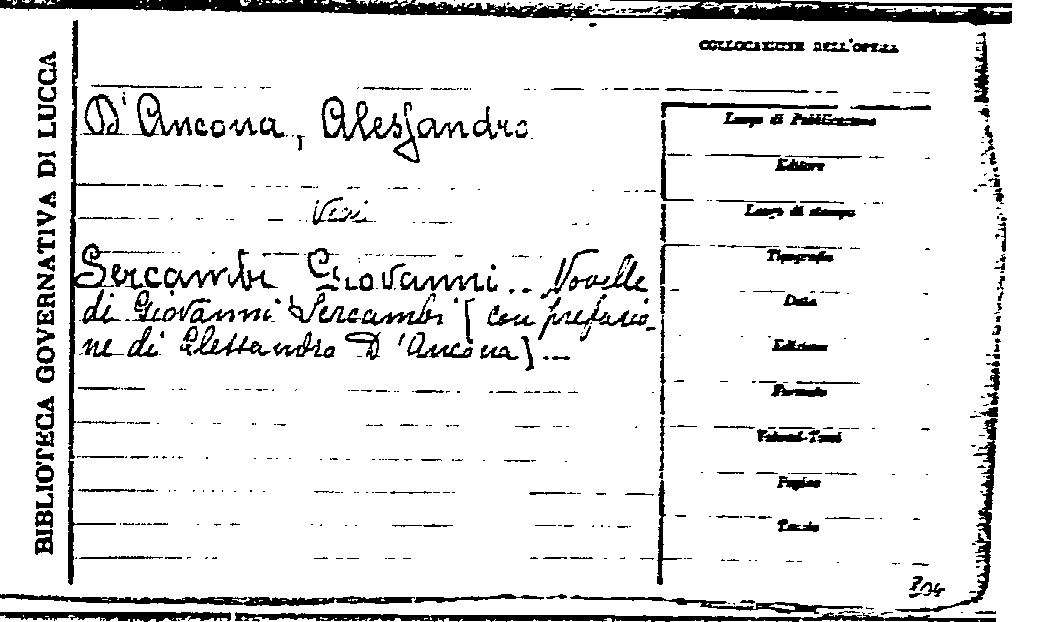 BIBLIOTECA GOVERNATIVA DI LUCCA
COLLOCAZIONE DELL'OPERA
D'Ancona, Alessandro
Vedi
Sercambi Giovanni. - Novelle
di Giovanni Sercambi [con prefazio-
ne di Alessandro D'Ancona] -
Luogo di Pubblicazione
Editore
Luogo di stampa
Tipografia
Data
Edizione
Formato
Volumi-Tomi
Pagine
Tavole